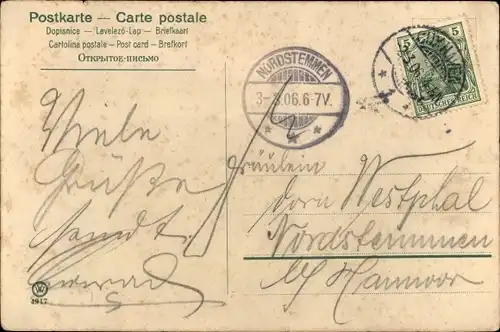 Postkarte — Carte postale
Dopisnice — Levelező-Lap — Briefkaart
Cartolina postale - Post card - Brefkort
Открытое-письмо
5 5
DEUTSCHES REICH
NORDSTEMMEN
3-3.06.6-7V.
Viele
Grüße
sendt
Fräulein
Dora Westphal
Nordstemmen
b/ Hannover
W
3917